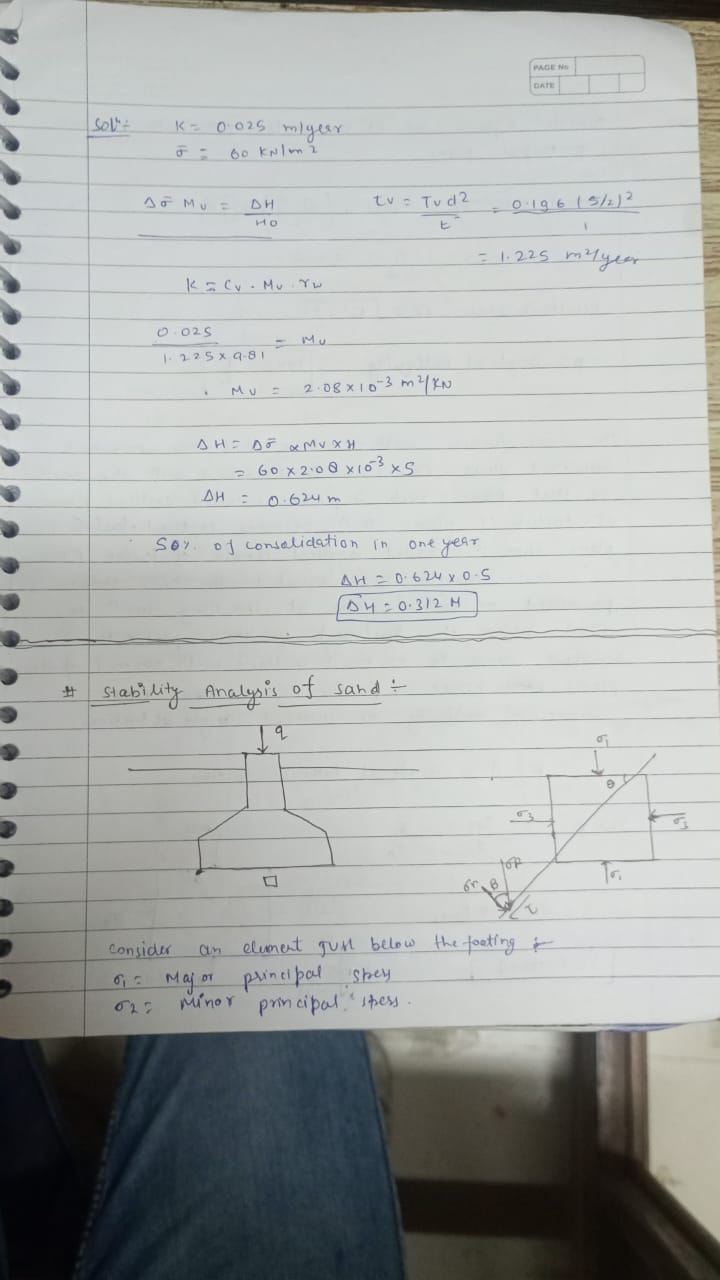 PAGE No
DATE
Solⁿ:- K = 0.025 m/year
σ̄ = 60 KN/m2
Δσ̄ Mv = ΔH/H0
Cv = Tvd2/t = 0.196 (5/2)2/1
= 1.225 m2/year
K = Cv . Mv . rw
0.025/1.225 x 9.81 = Mv
. Mv = 2.08 x 10-3 m2/KN
ΔH = Δσ̄ x Mv x H
= 60 x 2.08 x 10-3 x 5
ΔH = 0.624 m
50%. of consalidation in one year
ΔH = 0.624 x 0.5
ΔH = 0.312 M
# Stability Analysis of sand :-
q
σ1
θ
σ3 σ3
σR
σn θ
τ
σ1
Consider an element just below the footing :-
σ1 = Major principal stress
σ2 = Minor principal stress.